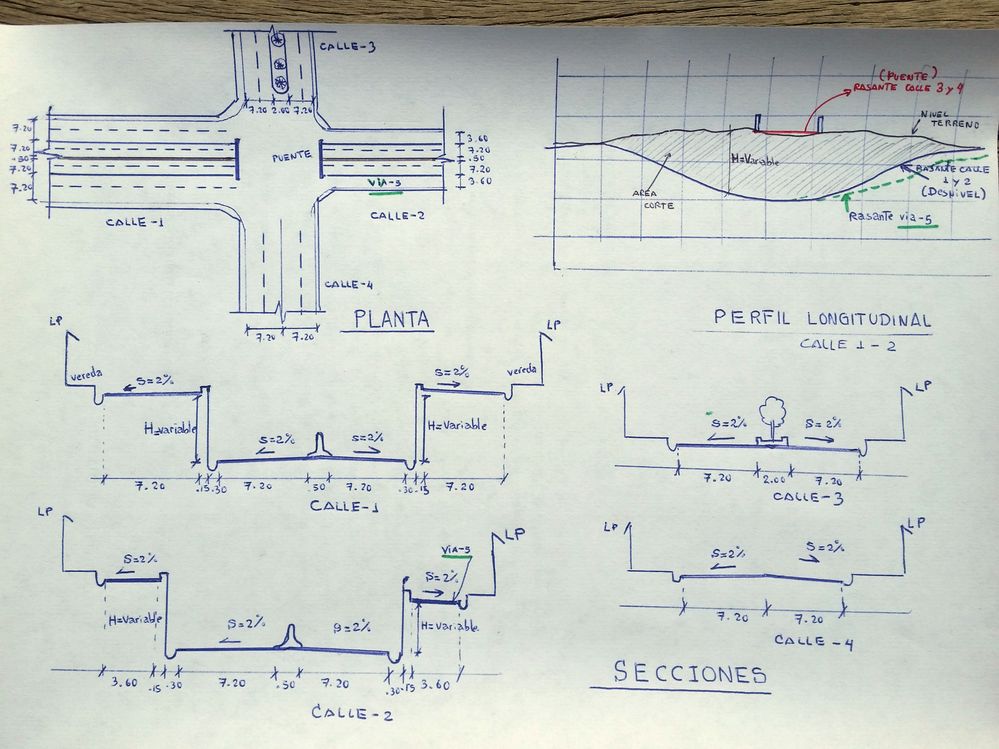 CALLE-3
7.20 2.00 7.20
7.20
7.20
.50
7.20
7.20
PUENTE
3.60
7.20
.50
7.20
3.60
VIA-5
CALLE-1
CALLE-2
CALLE-4
7.20 7.20
PLANTA
(PUENTE)
RASANTE CALLE 3 y 4
NIVEL
TERRENO
H=Variable
AREA
CORTE
RASANTE CALLE
1 y 2
(DESNIVEL)
Rasante via-5
PERFIL LONGITUDINAL
CALLE 1-2
LP
LP
vereda
S=2%
S=2%
vereda
H=Variable
S=2%
S=2%
H=Variable
7.20 .15 .30 7.20 .50 7.20 .30 .15 7.20
CALLE-1
LP
LP
S=2%
S=2%
7.20 2.00 7.20
CALLE-3
LP
LP
VIA-5
S=2%
S=2%
H=Variable
S=2%
S=2%
H=Variable
3.60 .15 .30 7.20 .50 7.20 .30 .15 3.60
CALLE-2
LP
LP
S=2%
S=2%
7.20 7.20
CALLE-4
SECCIONES